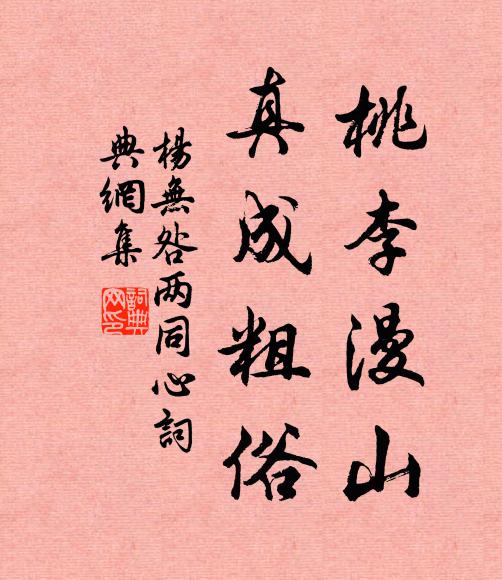 桃李漫山
真成粗俗
楊無咎两同心詞
典網集
詞典網印